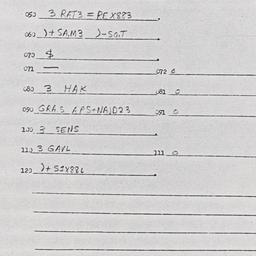 050 3 RAT3 = PE X883
060 )+ SAM3 )-SOT
070 $
071 — 072 0
080 3 HAK 081 0
090 GRAS APS+NAJD23 091 0
100 3 SENS
110 3 GAVL 111 0
120 )+ S1X886